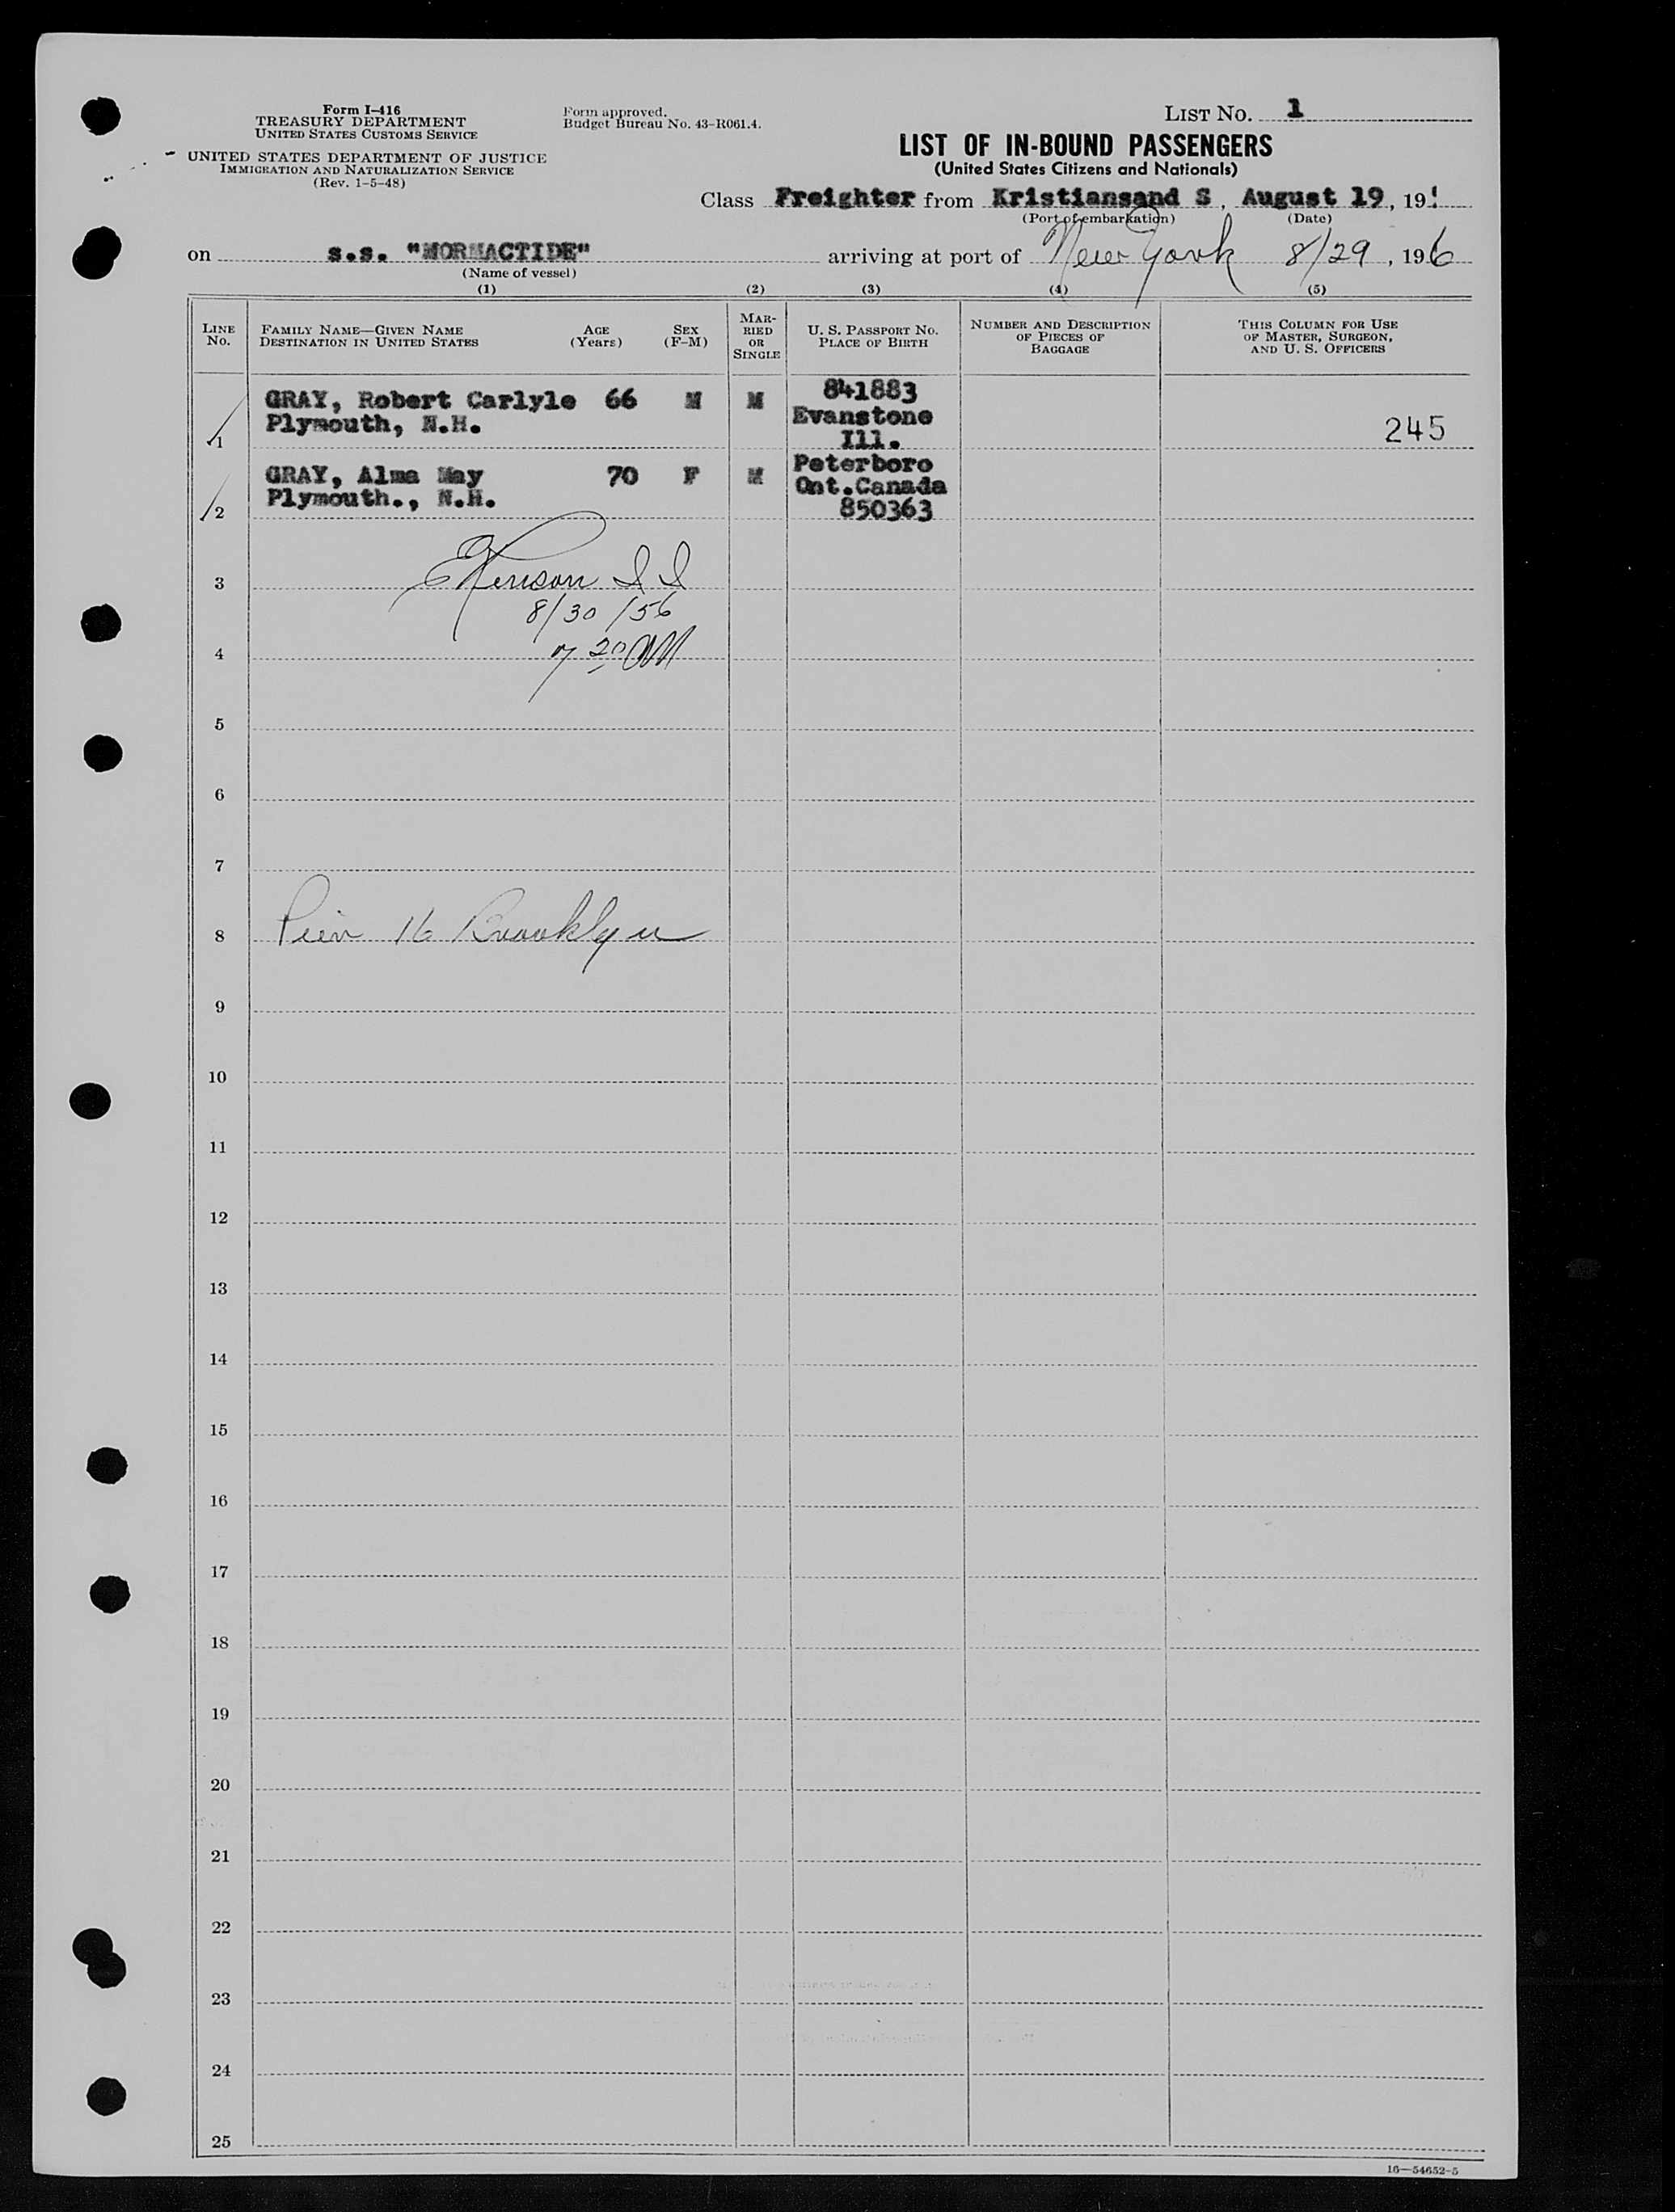 Form I-416
TREASURY DEPARTMENT
UNITED STATES CUSTOMS SERVICE
UNITED STATES DEPARTMENT OF JUSTICE
IMMIGRATION AND NATURALIZATION SERVICE
(Rev. 1-5-48)
Form approved.
Budget Bureau No. 43-R061.4.
LIST No. 1
LIST OF IN-BOUND PASSENGERS
(United States Citizens and Nationals)
Class Freighter from Kristiansand S, August 19, 19
(Port of embarkation) (Date)
on s.s. "MORMACTIDE" arriving at port of New York 8/29, 196
(Name of vessel)
(1) (2) (3) (4) (5)
LINE No.
FAMILY NAME—GIVEN NAME
DESTINATION IN UNITED STATES
AGE (Years)
SEX (F-M)
MARRIED OR SINGLE
U. S. PASSPORT No.
PLACE OF BIRTH
NUMBER AND DESCRIPTION
OF PIECES OF
BAGGAGE
THIS COLUMN FOR USE
OF MASTER, SURGEON,
AND U. S. OFFICERS
1 GRAY, Robert Carlyle 66 M M 841883
Plymouth, N.H. Evanstone
Ill. 245
2 GRAY, Alma May 70 F M Peterboro
Plymouth., N.H. Ont.Canada
850363
3
8/30/56
4 7 20 AM
5
6
7
8 Pier 16 Brooklyn
9
10
11
12
13
14
15
16
17
18
19
20
21
22
23
24
25
16—54652-5